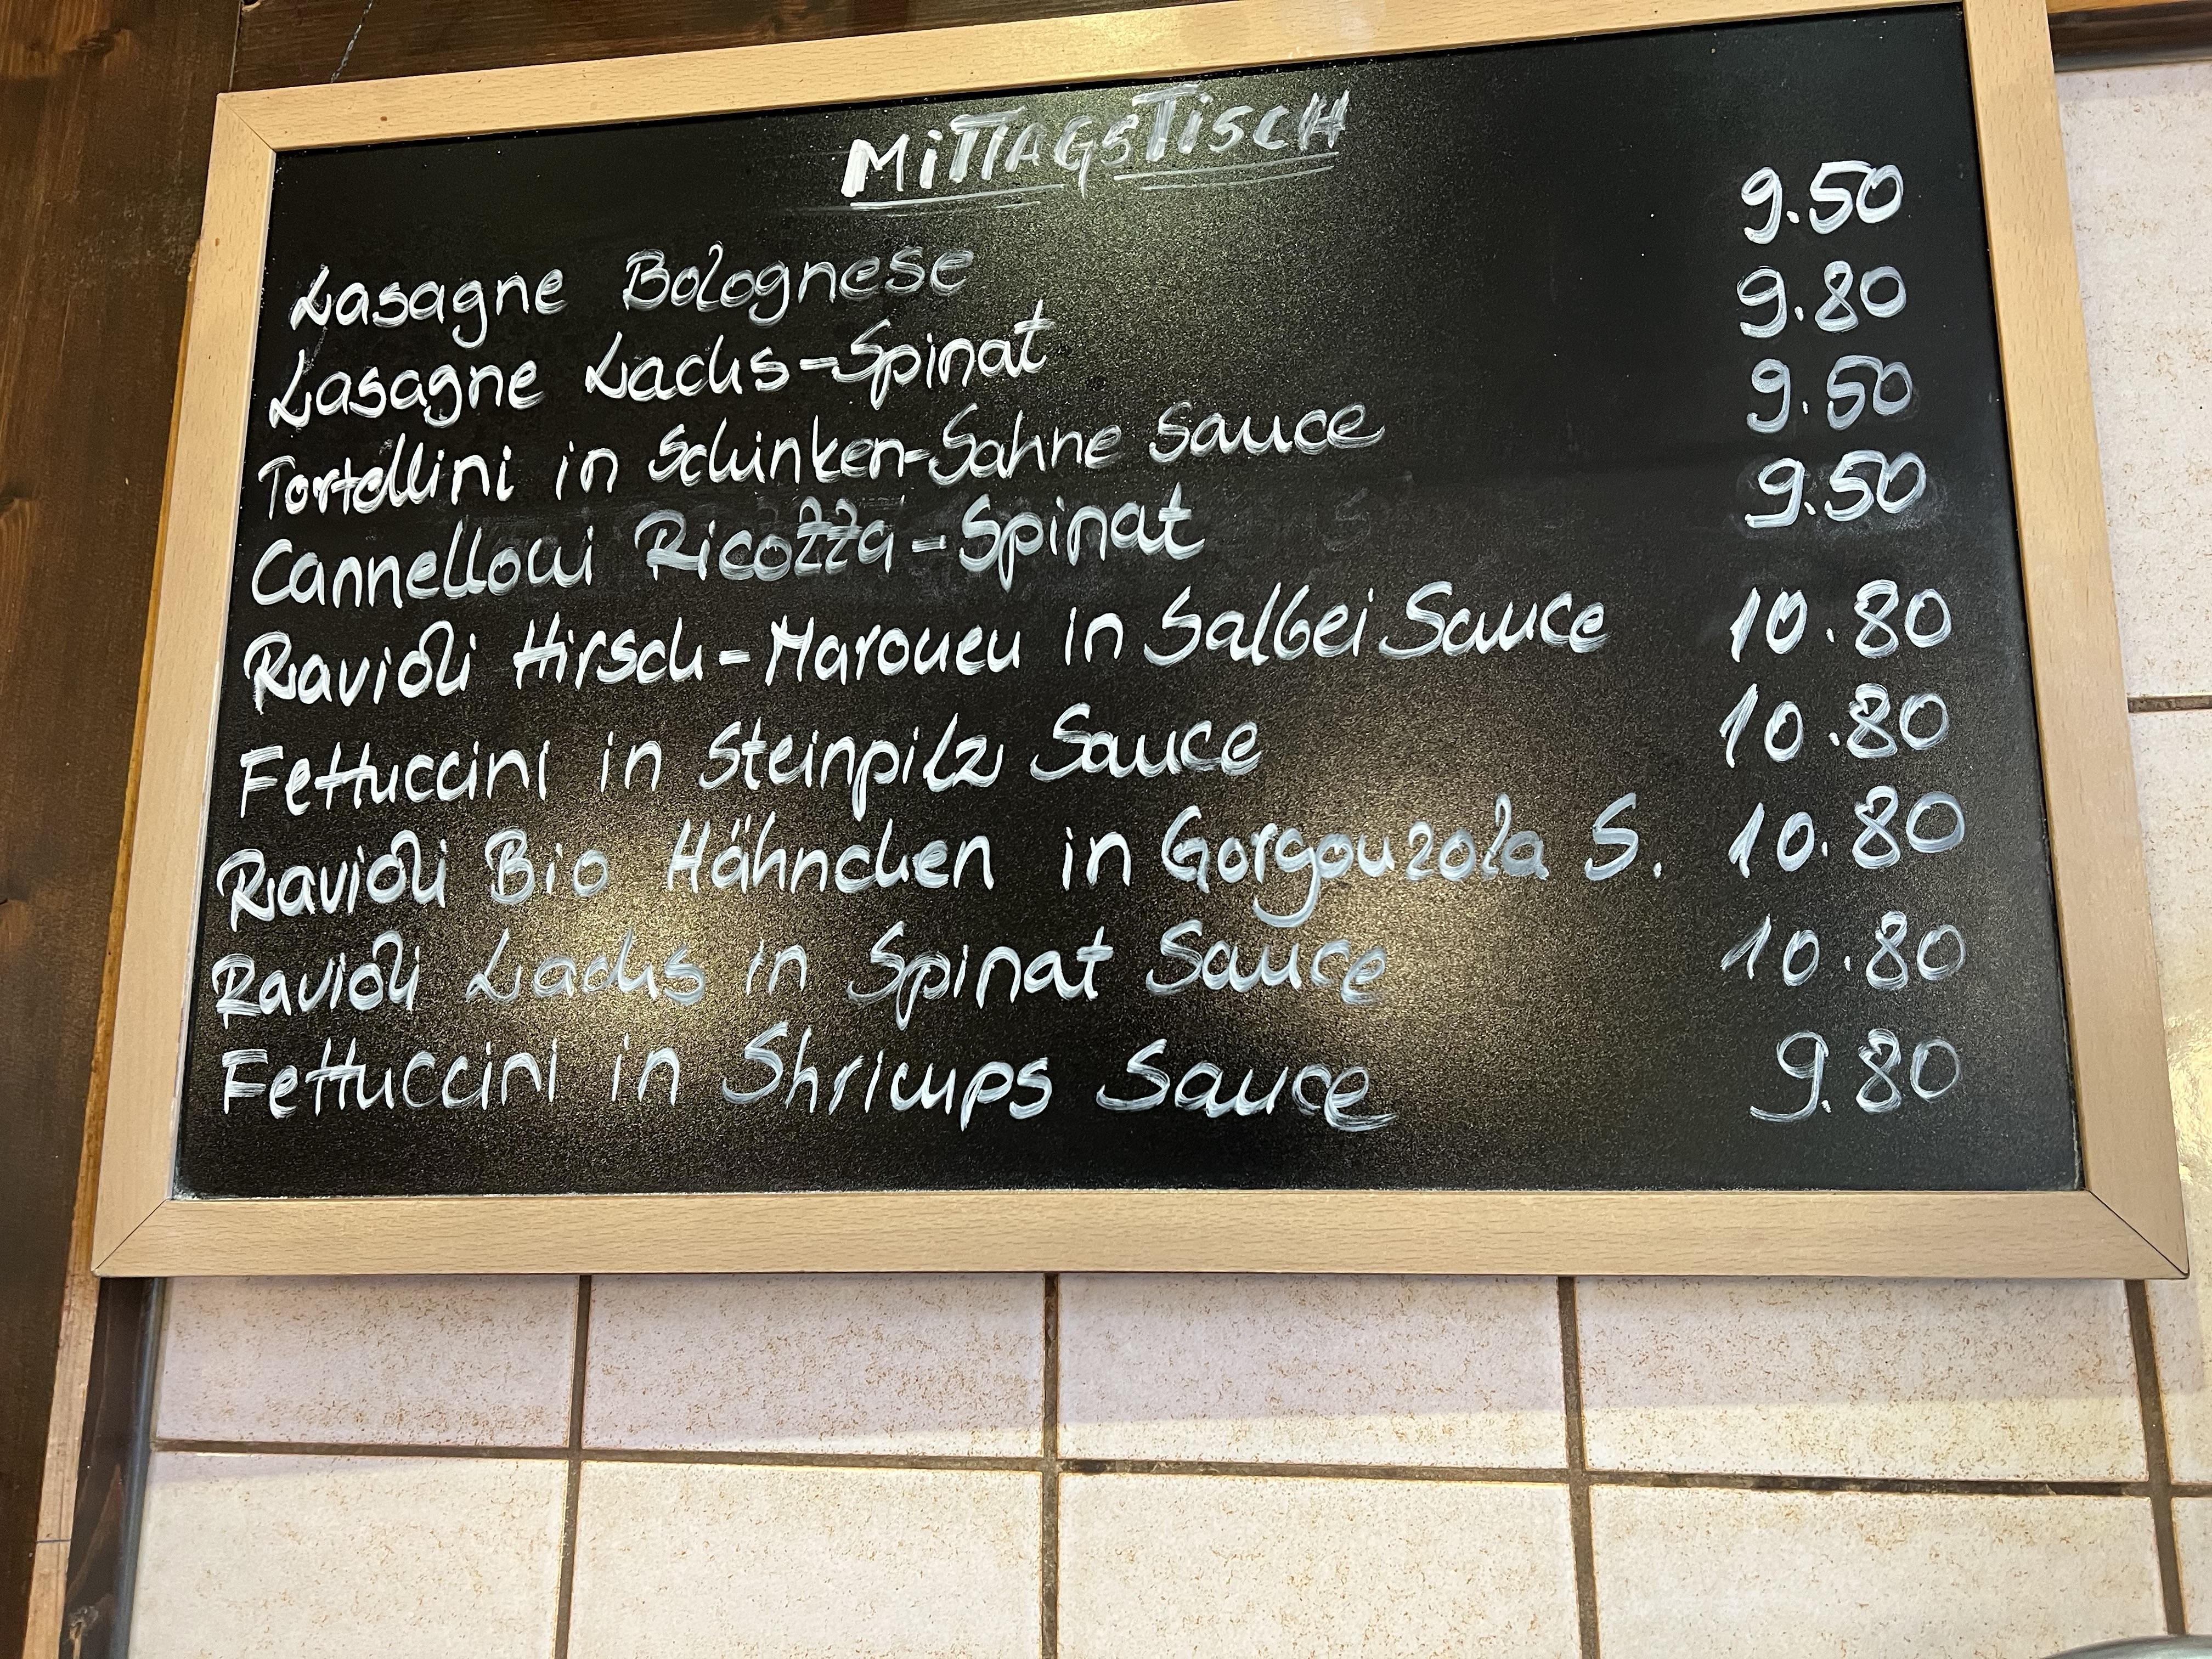 MITTAGSTISCH
Lasagne Bolognese 9.50
Lasagne Lachs-Spinat 9.80
Tortellini in Schinken-Sahne Sauce 9.50
Cannelloni Ricotta-Spinat 9.50
Ravioli Hirsch-Maronen in Salbei Sauce 10.80
Fettuccini in Steinpilz Sauce 10.80
Ravioli Bio Hähnchen in Gorgonzola S. 10.80
Ravioli Lachs in Spinat Sauce 10.80
Fettuccini in Shrimps Sauce 9.80